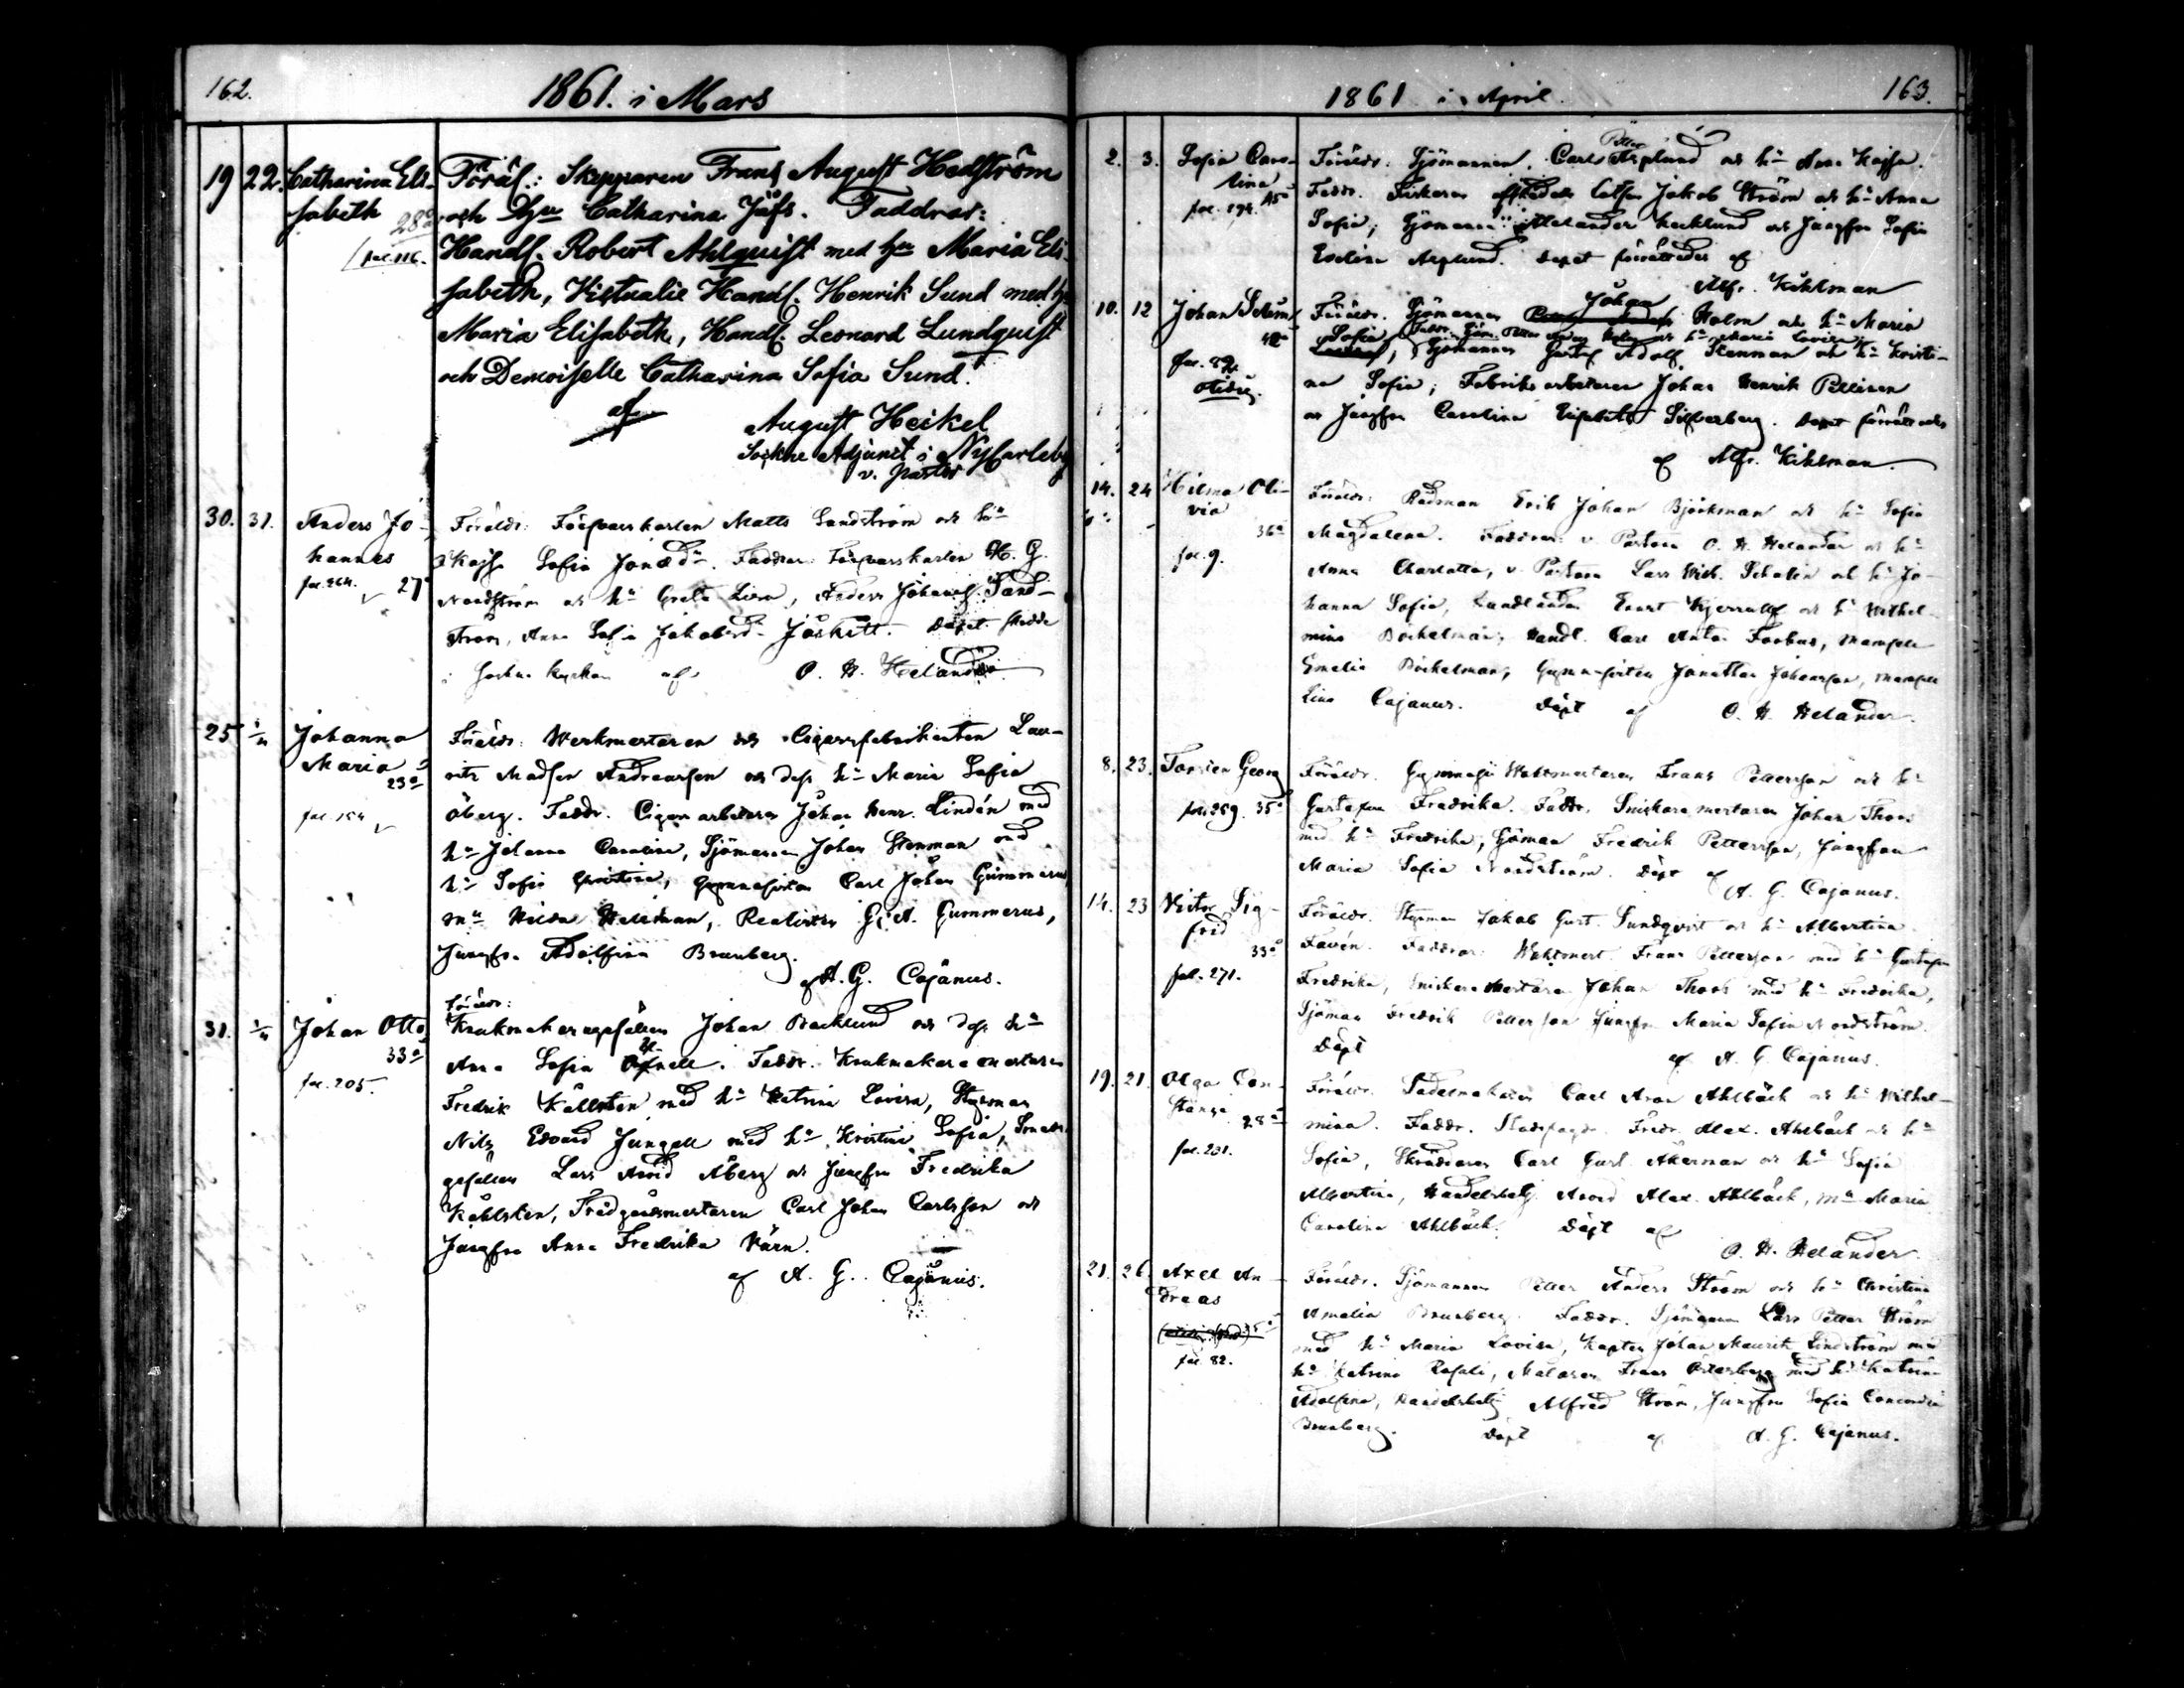 162.
1861. i Mars
19 22. Catharina Eli- Föräl.: Skepparen Frans August Hedström
sabeth 28a och Hu Catharina Jåfs. Faddrar:
fol. 116. Handl. Robert Ahlquist med hu Maria Eli-
sabeth, Victualie Handl. Henrik Sund med hu
Maria Elisabeth, Handl. Leonard Lundquist
och Demoiselle Catharina Sofia Sund.
af August Heikel
Sockne Adjunct i NyCarleby
v. pastor
30. 31. Anders Jo- Föräldr: Förpasskarlen Matts Sandström och hu
hannes Kajsa Sofia Jonæd. Faddrar: Förpasskarlen H. G.
fol. 264. 27 Nordström och hu Greta Lisa, Anders Johansf. Sand-
ström, Anna Sofia Jakobsd. Döpet skedde
i kyrkan af O. H. Helander
25 Johanna Föräldr: Werkmestaren och Cigarrfabrikanten Lau-
Maria 23a ritz Madsen Andreassen och dess hu Maria Sofia
fol. 154 Öberg. Faddr. Cigarrarbetaren Johan Henr. Lindén med
hu Johanna Carolina, Sjömannen Johan Stenman med
hu Sofia Christina, Gymnasisten Carl Johan Gummerus
Hellman, Realisten G. A. Gummerus,
Jungfr. Adolfina Brunberg.
af A. G. Cajanus.
Föräldr:
31. Johan Otto Krukmakaregesällen Johan Backlund och dess hu
33a Anna Sofia. Faddr. Krukmakaremestaren
fol. 205. Fredrik Kållsten med hu Katrina Lovisa, Styrman
Nils Edvard Jungell med hu Kristina Sofia,
gesällen Lars Arvid Åberg och Jungfru Fredrika
Kåhlsten, Trädgårdsmestaren Carl Johan Carlsson och
Jungfru Anna Fredrika Värn.
af A. G. Cajanus.
1861 i April. 163.
Petter
2. 3. Sofia Caro- Föräldr. Sjömannen Carl Asplund och hu Anna Kajsa.
lina Faddr. Jakob Ström och hu Anna
fol. 194. 45 Sofia, Sjömann Alexander Backlund och Jungfru Sofia
Evelina Asplund. Döpet förrättades af
Alfr. Kihlman
Johan
10. 12 Johan Föräldr. Sjömannen Holm och hu Maria
Sofia
fol. 82. Sjömannen Gustaf Adolf Stenman och hu Kristi-
na Sofia, Fabriksarbetaren Johan Henrik Pellinen
o Jungfru Carolina Elisabeth Silfverberg. Döpet förrättades
af Alfr. Kihlman.
14. 24 Hilma Oli- Föräldr: Rådman Erik Johan Björkman och hu Sofia
via 36a Magdalena. Faddrar: v. Pastorn O. H. Helander o hu
fol. 9. Anna Charlotta, v. Pastorn Lars Wilh. Schalin och hu Jo-
hanna Sofia, Handlanden Evert Kjerrulff och hu Wilhel-
mina Böckelman, Handl. Carl Anton Forbus, Mamsell
Emelie Böckelman, Gymnasisten Jonathan Johansson, Mamsell
Lina Cajanus. Döpt af O. H. Helander.
8. 23. Torsten Georg Föräldr. Gymnasii Waktmestaren Frans Pettersson och hu
fol. 269. 35a Gustafva Fredrika. Faddr. Snickaremestaren Johan Thors
med hu Fredrika, Sjöman Fredrik Pettersson, Jungfrun
Maria Sofia Nordström. Döpt af
A. G. Cajanus.
14. 23 Victor Sig- Föräldr. Styrman Jakob Gust. Sundqvist o hu Albertina
frid 33a Favén. Faddrar: Waktmest. Frans Pettersson med hu Gustafva
fol. 271. Fredrika, Snickaremestaren Johan Thors med hu Fredrika,
Sjöman Fredrik Pettersson Jungfru Maria Sofia Nordström.
Döpt af A. G. Cajanus.
19. 21. Olga Con- Föräldr. Sadelmakaren Carl Aron Ahlbäck och hu Wilhel-
stance 28a mina. Faddr. Stadsfogd. Fredr. Alex. Ahlbäck och hu
fol. 201. Sofia, Skräddaren Carl Gust. Åkerman och hu Sofia
Albertina, Handelsbetj. Arvid Alex. Ahlbäck, Maria
Carolina Ahlbäck. Döpt af
O. H. Helander.
21. 26. Axel An- Föräldr. Sjömannen Petter Anders Ström och hu Christina
dreas Amalia Brunberg. Faddr. Sjömannen Lars Petter Ström
med hu Maria Lovisa, Kapten Johan Maurits Lindström med
fol. 82. hu Katrina Rosali, Målaren Frans Österberg med hu Katrina
Adolfina, Handelsbetj Alfred Ström, Jungfru Sofia Concordia
Brunberg. Döpt af A. G. Cajanus.